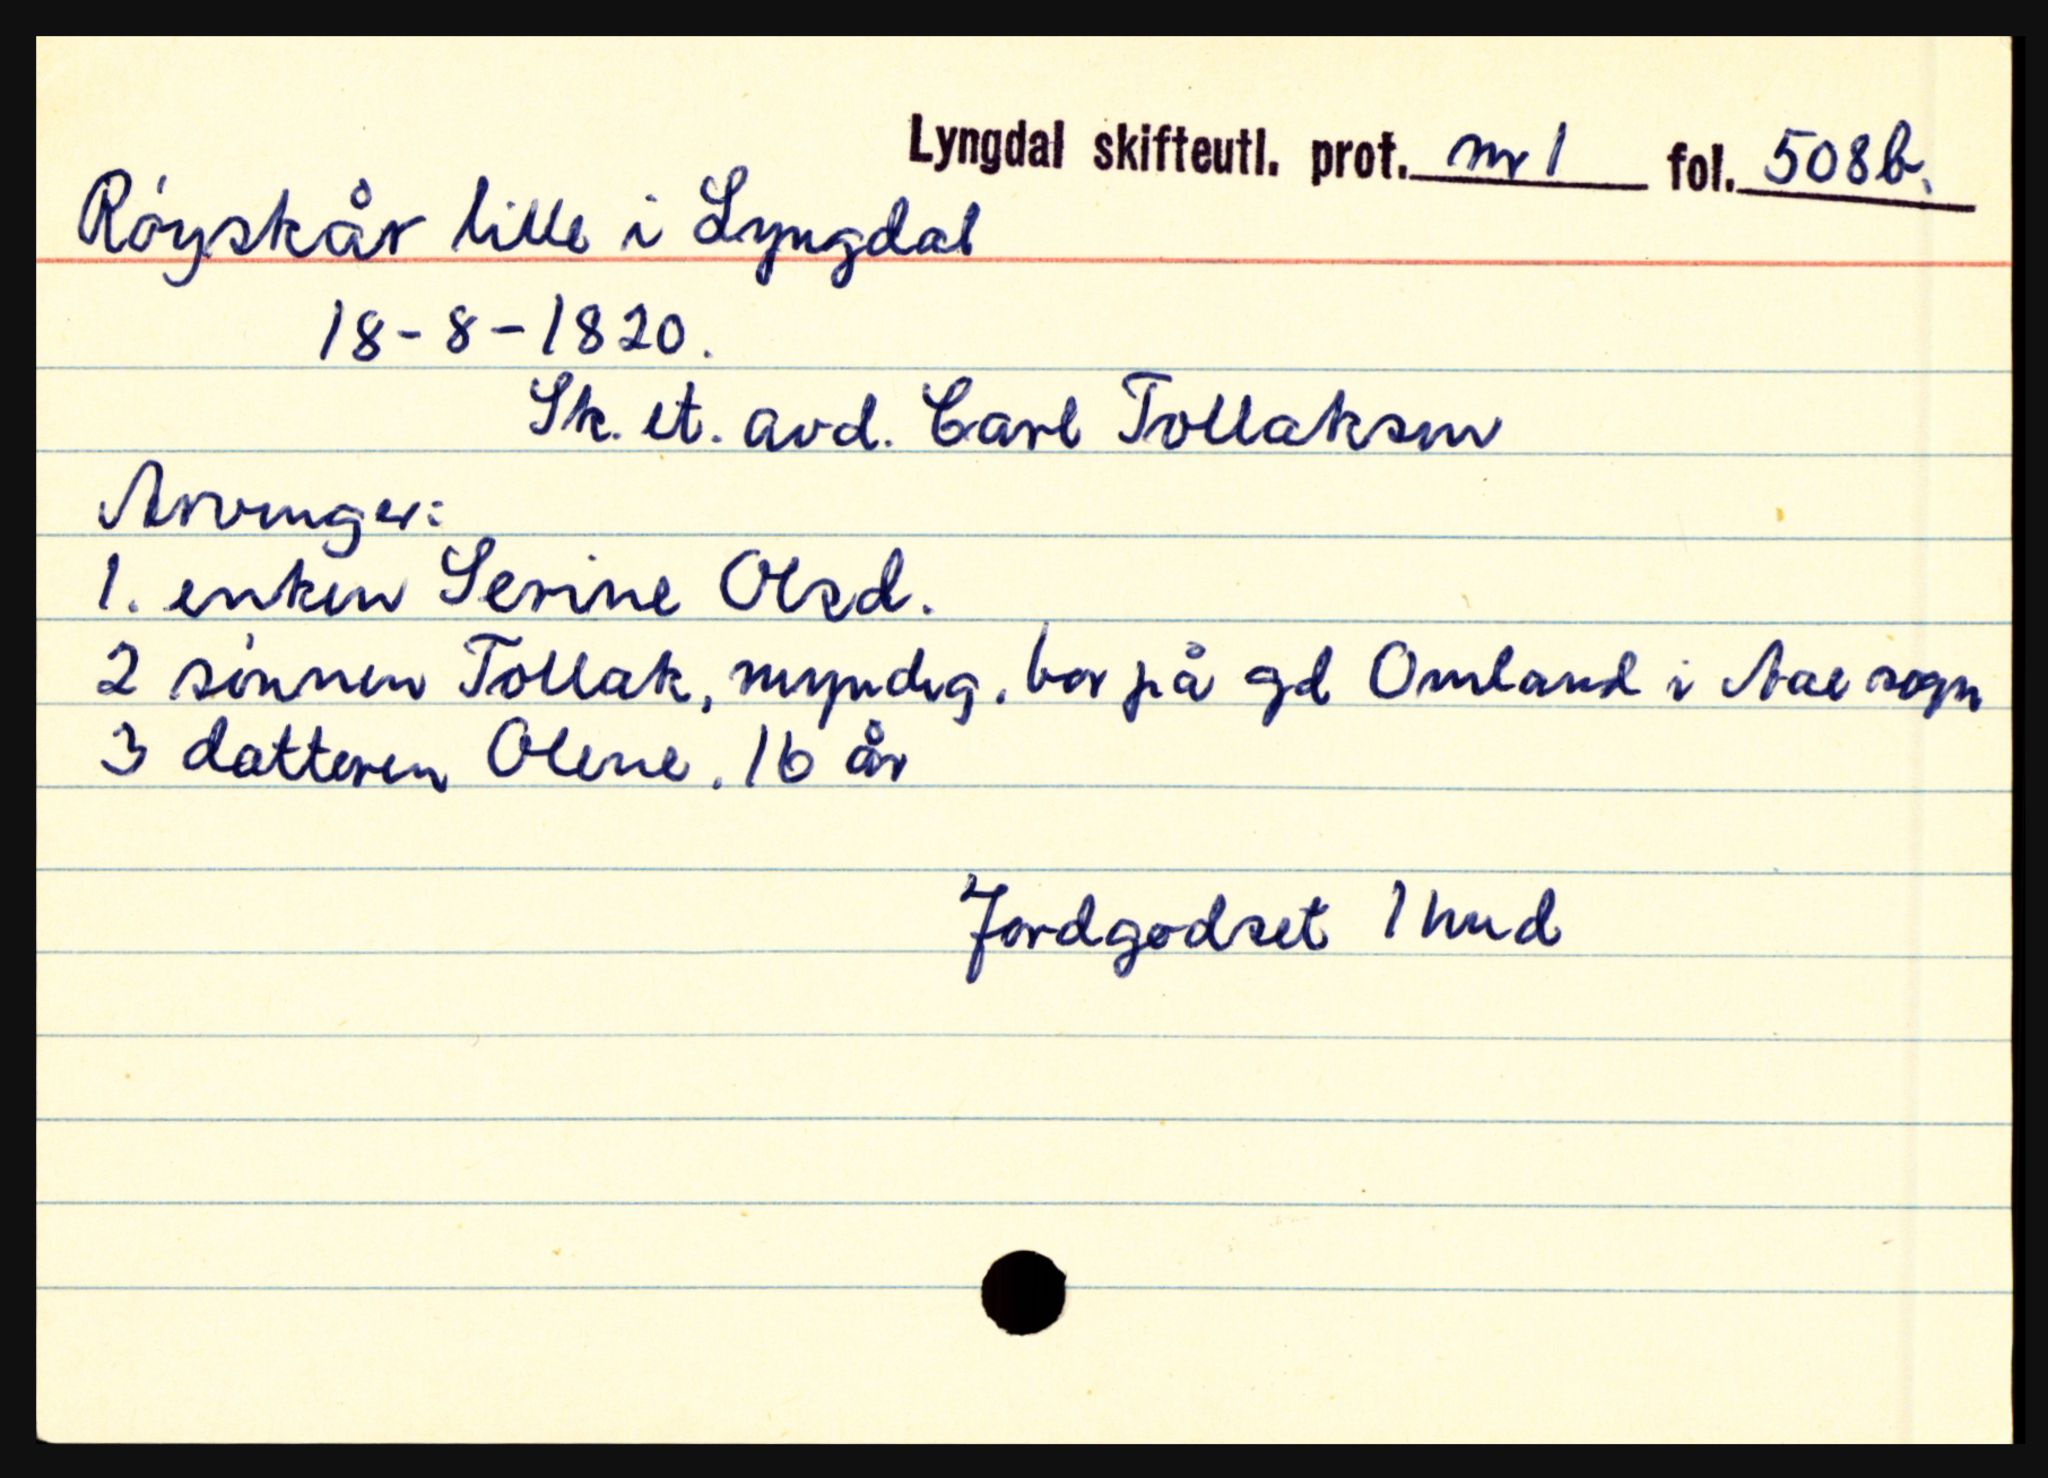 Lyngdal skifteutl. prot. nr 1 fol. 508b.
Røyskår lille i Lyngdal
18-8-1820.
Sk. et. avd. Carl Tollaksen
Arvinger:
1. enken Serine Olsd.
2 sønnen Tollak, myndig, bor på gd Omland i Aae sogn
3 datteren Olene, 16 år
Jordgodset 1 hud